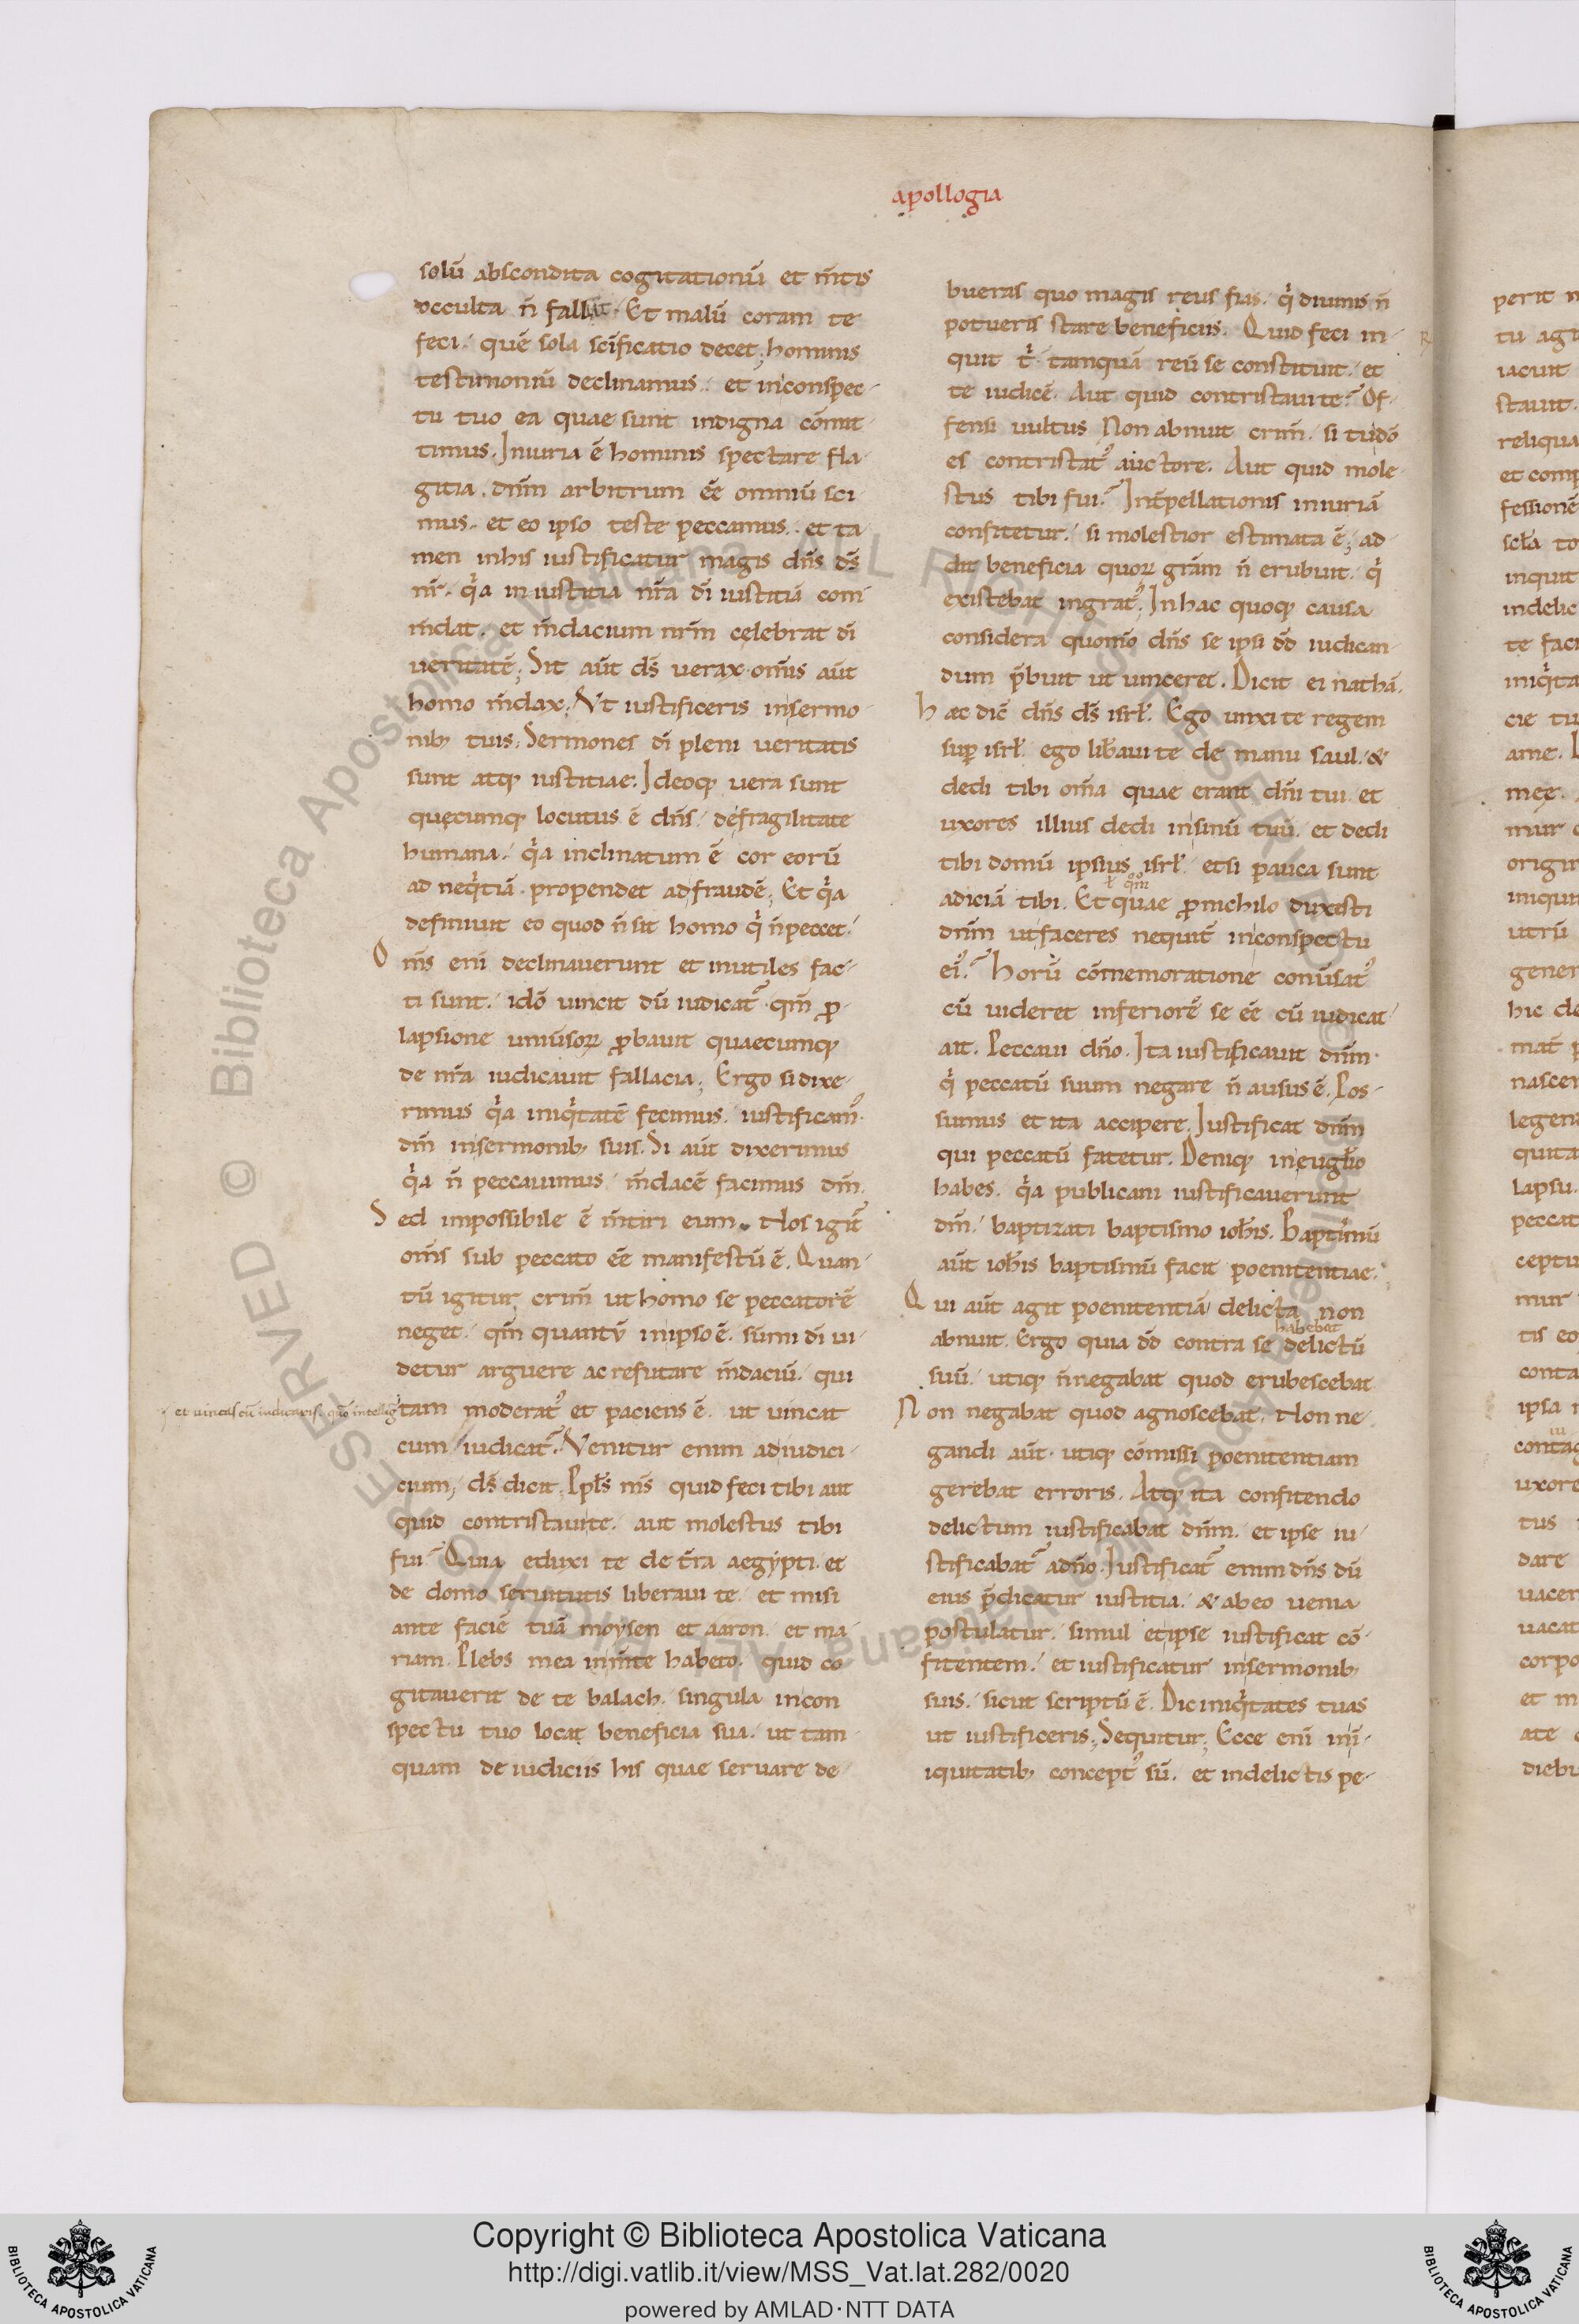 apollogia
solū abscondita cogitationū et m̄tis
occulta n̄ fallit. Et malū coram te
feci. quē sola sc̄ificatio decet; hominis
testimoniū declinamus. et inconspec-
tu tuo ea quae sunt indigna cōmit-
timus. Iniuria ē hominis spectare fla-
gitia. dn̄m arbitrum ēē omniū sci-
mus. et eo ipso teste peccamus. et ta-
men inhis iustificatur magis dn̄s ds̄
nr̄. qͥa iniustitia nr̄a dī iustitiā com-
m̄dat. et m̄dacium nr̄m celebrat dī
veritatē; Sit aūt ds̄ verax. om̄is aūt
homo m̄dax; Ut iustificeris insermo-
nib; tuis; Sermones dī pleni veritatis
sunt atq; iustitiae. Ideoq; vera sunt
quęcumq; locutus ē dn̄s. defragilitate
humana. qͥa inclinatum ē cor eorū
ad neqͥtiā. propendet adfraudē; Et qͥa
definiuit eo quod n̄ sit homo qͥ n̄peccet.
O m̄s enī declinaverunt et inutiles fac-
ti sunt. idō vincit dū iudicat᷑. qm̄ ꝓ-
lapsione univ̄soꝝ ꝓbavit quaecumq;
de nr̄a iudicavit fallacia; Ergo si dixe-
rimus qͥa iniqͥtatē fecimus. iustificam᷒
dm̄ insermonib; suis. Si aūt dixerimus
qͥa n̄ peccavimus. m̄dacē facimus dm̄.
S ed impossibile ē m̄tiri eum. Nos igit᷑
om̄s sub peccato ēē manifestū ē. Quan-
tū igitur crim̄ ut homo se peccatorē
neget. qm̄ quantū inipso ē. sūmi dī vi-
detur arguere ac refutare m̄daciū. qui
et vincas cū iudicaris. quō intelligit᷑
tam moderat᷒ et paciens ē. ut vincat
cum iudicat᷑. Venitur enim adiudici-
cium, ds̄ dicit. Ppls̄ m̄s quid feci tibi aut
quid contristavite. aut molestus tibi
fui? Quia eduxi te de t̄ra aegypti. et
de domo servitutis liberavi te. et misi
ante faciē tuā moysen et aaron. et ma-
riam. Plebs mea inm̄te habeto. quid co
gitaverit de te balach. singula incon
spectu tuo locat beneficia sua. ut tam-
quam de iudiciis his quae servare de-
bueras quo magis reus fias. qͥ divinis n̄
potueris stare beneficiis. Quid feci in-
quit t͛. tamquā reū se constituit. et
te iudicē. Aut quid contristavi te? Of-
fensi vultus Non abnuit crim̄. si tudō
es contristat᷒ auctore. Aut quid mole-
stus tibi fui? Int̄pellationis iniuriā
confitetur. si molestior estimata ē; ad-
dit beneficia quoꝝ gr̄am n̄ erubuit. qͥ
existebat ingrat᷒; Inhac quoq; causa
considera quomō dn̄s se ipsi dd̄ iudican-
dum p̄buit ut vinceret. Dicit ei nathā.
H aec dic̄ dn̄s ds̄ isrl̄. Ego unxi te regem
sup̄ isrl̄. ego lib̄avi te de manu saul. &
dedi tibi om̄a quae erant dn̄i tui. et
uxores illius dedi insinū tuū. et dedi
tibi domū ipsius isrl̄. etsi pauca sunt
ł qm̄
adiciā tibi. Et quae ꝓnichilo duxisti
dn̄m utfaceres nequit᷑ inconspectu
ei᷒? Horū cōmemoratione conv̄sat᷒
cū videret inferiorē se ēē cū iudicat᷑
ait. Peccavi dn̄o. Ita iustificavit dn̄m.
qͥ peccatū suum negare n̄ ausus ē. Pos-
sumus et ita accipere. Iustificat dn̄m
qui peccatū fatetur. Deniq; ineuglīo
habes. qͥa publicani iustificaverunt
dm̄. baptizati baptismo ioh̄is. Baptimū
aūt ioh̄is baptismū facit poenitentiae.
Q ui aūt agit poenitentiā delicta non
habebat
abnuit. Ergo quia dd̄ contra se delictū
suū. utiq; n̄negabat quod erubescebat
N on negabat quod agnoscebat. Non ne-
gandi aūt. utiq; cōmissi poenitentiam
gerebat erroris. Atq; ita confitendo
delictum iustificabat dn̄m. et ipse iu-
stificabat᷑ adn̄o. Iustificat᷑ enim dn̄s dū
eius p̄dicatur iustitia. & abeo venia
postulatur. simul etipse iustificat cō-
fitentem. et iustificatur insermonib;
suis. sicut scriptū ē. Dic iniqͥtates tuas
ut iustificeris; Sequitur; Ecce enī inī-
iquitatib; concept᷒ sū. et indelictis pe-
perit
tu
iacuit
stavit.
reliqua
et
fessionē
inquit
te
cie
ame.
mur
utrū
hic
legen
lapsu.
peccat
tis
ipsa
dare
et
ate
Copyright © Biblioteca Apostolica Vaticana
http://digi.vatlib.it/view/MSS_Vat.lat.282/0020
powered by AMLAD·NTT DATA
BIBLIOTECA APOSTOLICA VATICANA
BIBLIOTECA APOSTOLICA VATICANA